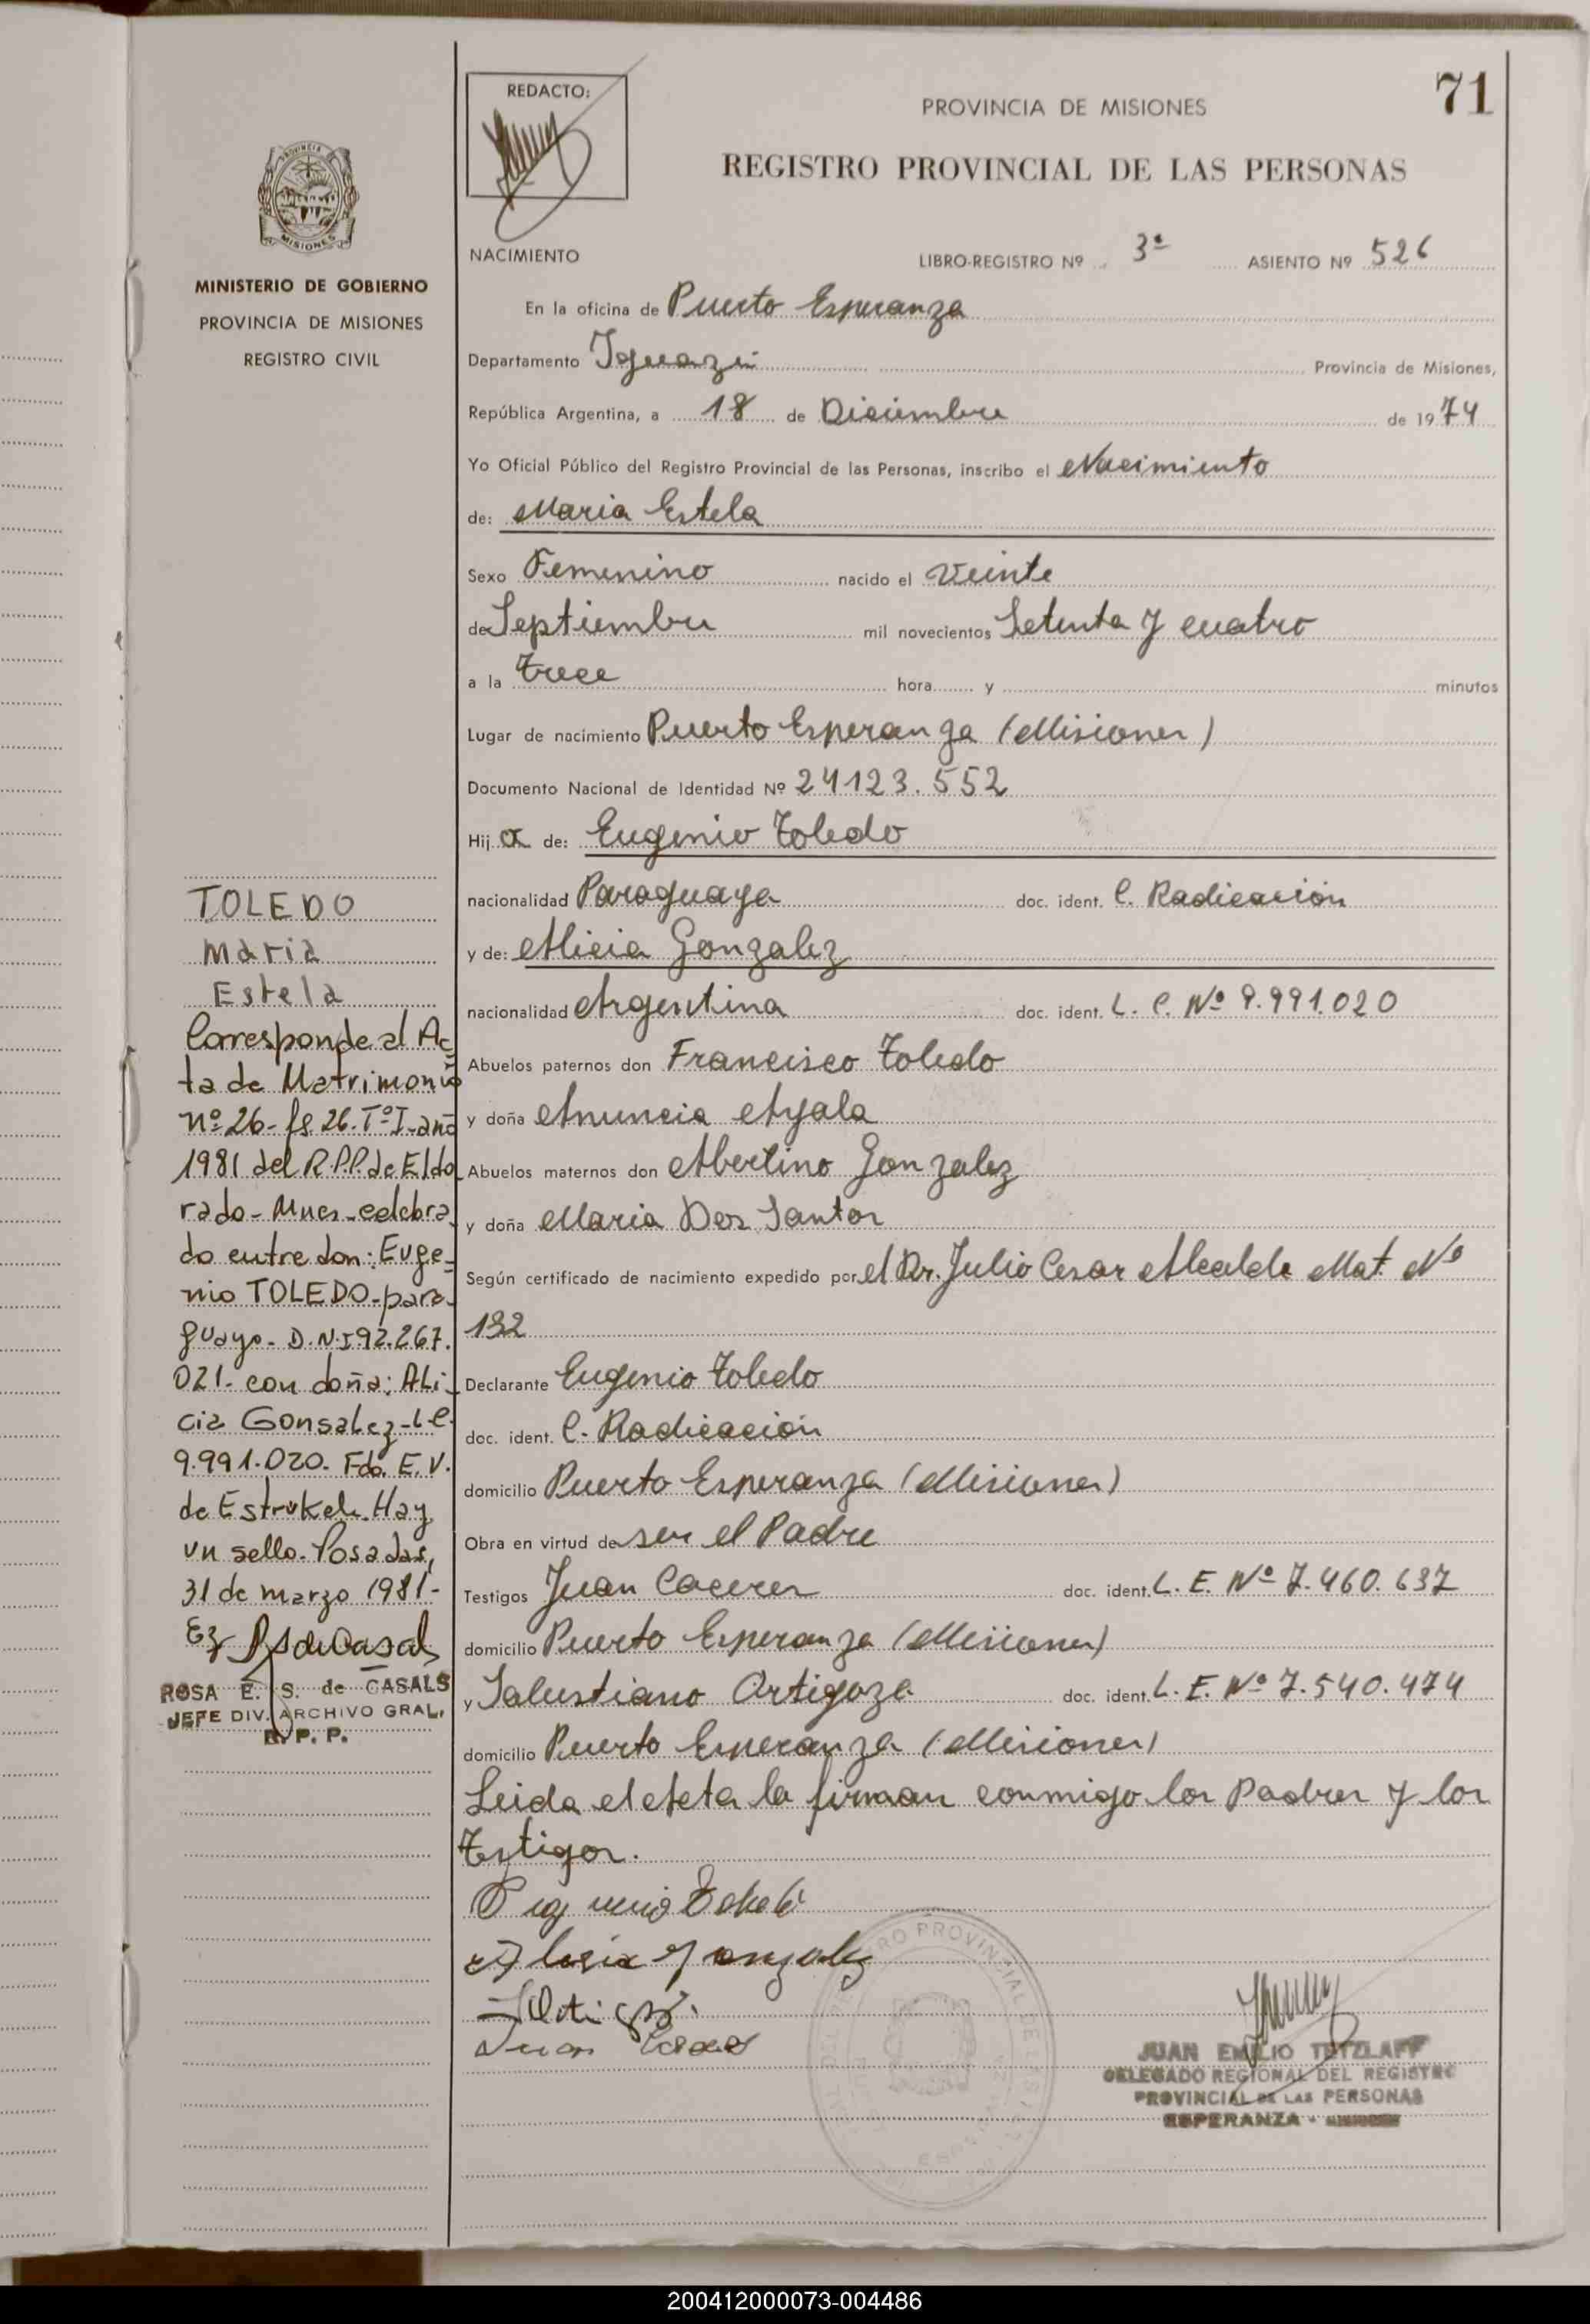 71
REDACTO:
PROVINCIA DE MISIONES
REGISTRO PROVINCIAL DE LAS PERSONAS
PROVINCIA
MISIONES
MINISTERIO DE GOBIERNO
PROVINCIA DE MISIONES
REGISTRO CIVIL
NACIMIENTO LIBRO-REGISTRO Nº 3ª ASIENTO Nº 526
En la oficina de Puerto Esperanza
Departamento Iguazú Provincia de Misiones,
República Argentina, a 18 de Diciembre de 1974
Yo Oficial Público del Registro Provincial de las Personas, inscribo el Nacimiento
de: Maria Estela
Sexo Femenino nacido el Veinte
de Septiembre mil novecientos Setenta y cuatro
a la trece hora y minutos
Lugar de nacimiento Puerto Esperanza (Misiones)
Documento Nacional de Identidad Nº 24123.552
Hij a de: Eugenio Toledo
nacionalidad Paraguaya doc. ident. C. Radicación
y de: Alicia Gonzalez
nacionalidad Argentina doc. ident. L. C. Nº 9.991.020
Abuelos paternos don Francisco Toledo
y doña Anuncia Ayala
Abuelos maternos don Albertino Gonzalez
y doña Maria Dos Santos
Según certificado de nacimiento expedido por el Dr. Julio Cesar Alcalde Mat. Nº
132
Declarante Eugenio Toledo
doc. ident. C. Radicación
domicilio Puerto Esperanza (Misiones)
Obra en virtud de ser el Padre
Testigos Juan Caceres doc. ident. L. E. Nº 7.460.637
domicilio Puerto Esperanza (Misiones)
y Salustiano Ortigoza doc. ident. L. E. Nº 7.540.474
domicilio Puerto Esperanza (Misiones)
Leida el Acta la firman conmigo los Padres y los
Testigos.
Alicia Gonzalez
Juan
JUAN EMILIO TETZLAFF
DELEGADO REGIONAL DEL REGISTRO
PROVINCIAL DE LAS PERSONAS
ESPERANZA - MISIONES
TOLEDO
Maria
Estela
Corresponde al Ac-
ta de Matrimonio
nº 26- fs 26. Tº I- año
1981 del R.P.P. de Eldo
rado- Mnes- celebra
do entre don: Euge-
nio TOLEDO- para-
guayo- D.N.I 92.267.
021- con doña: ALi-
cia Gonsalez- L C.
9.991.020. Fdo. E. V.
de Estrukel. Hay
un sello. Posadas,
31 de marzo 1981-
ROSA E. S. de CASALS
JEFE DIV. ARCHIVO GRAL.
R. P. P.
200412000073-004486